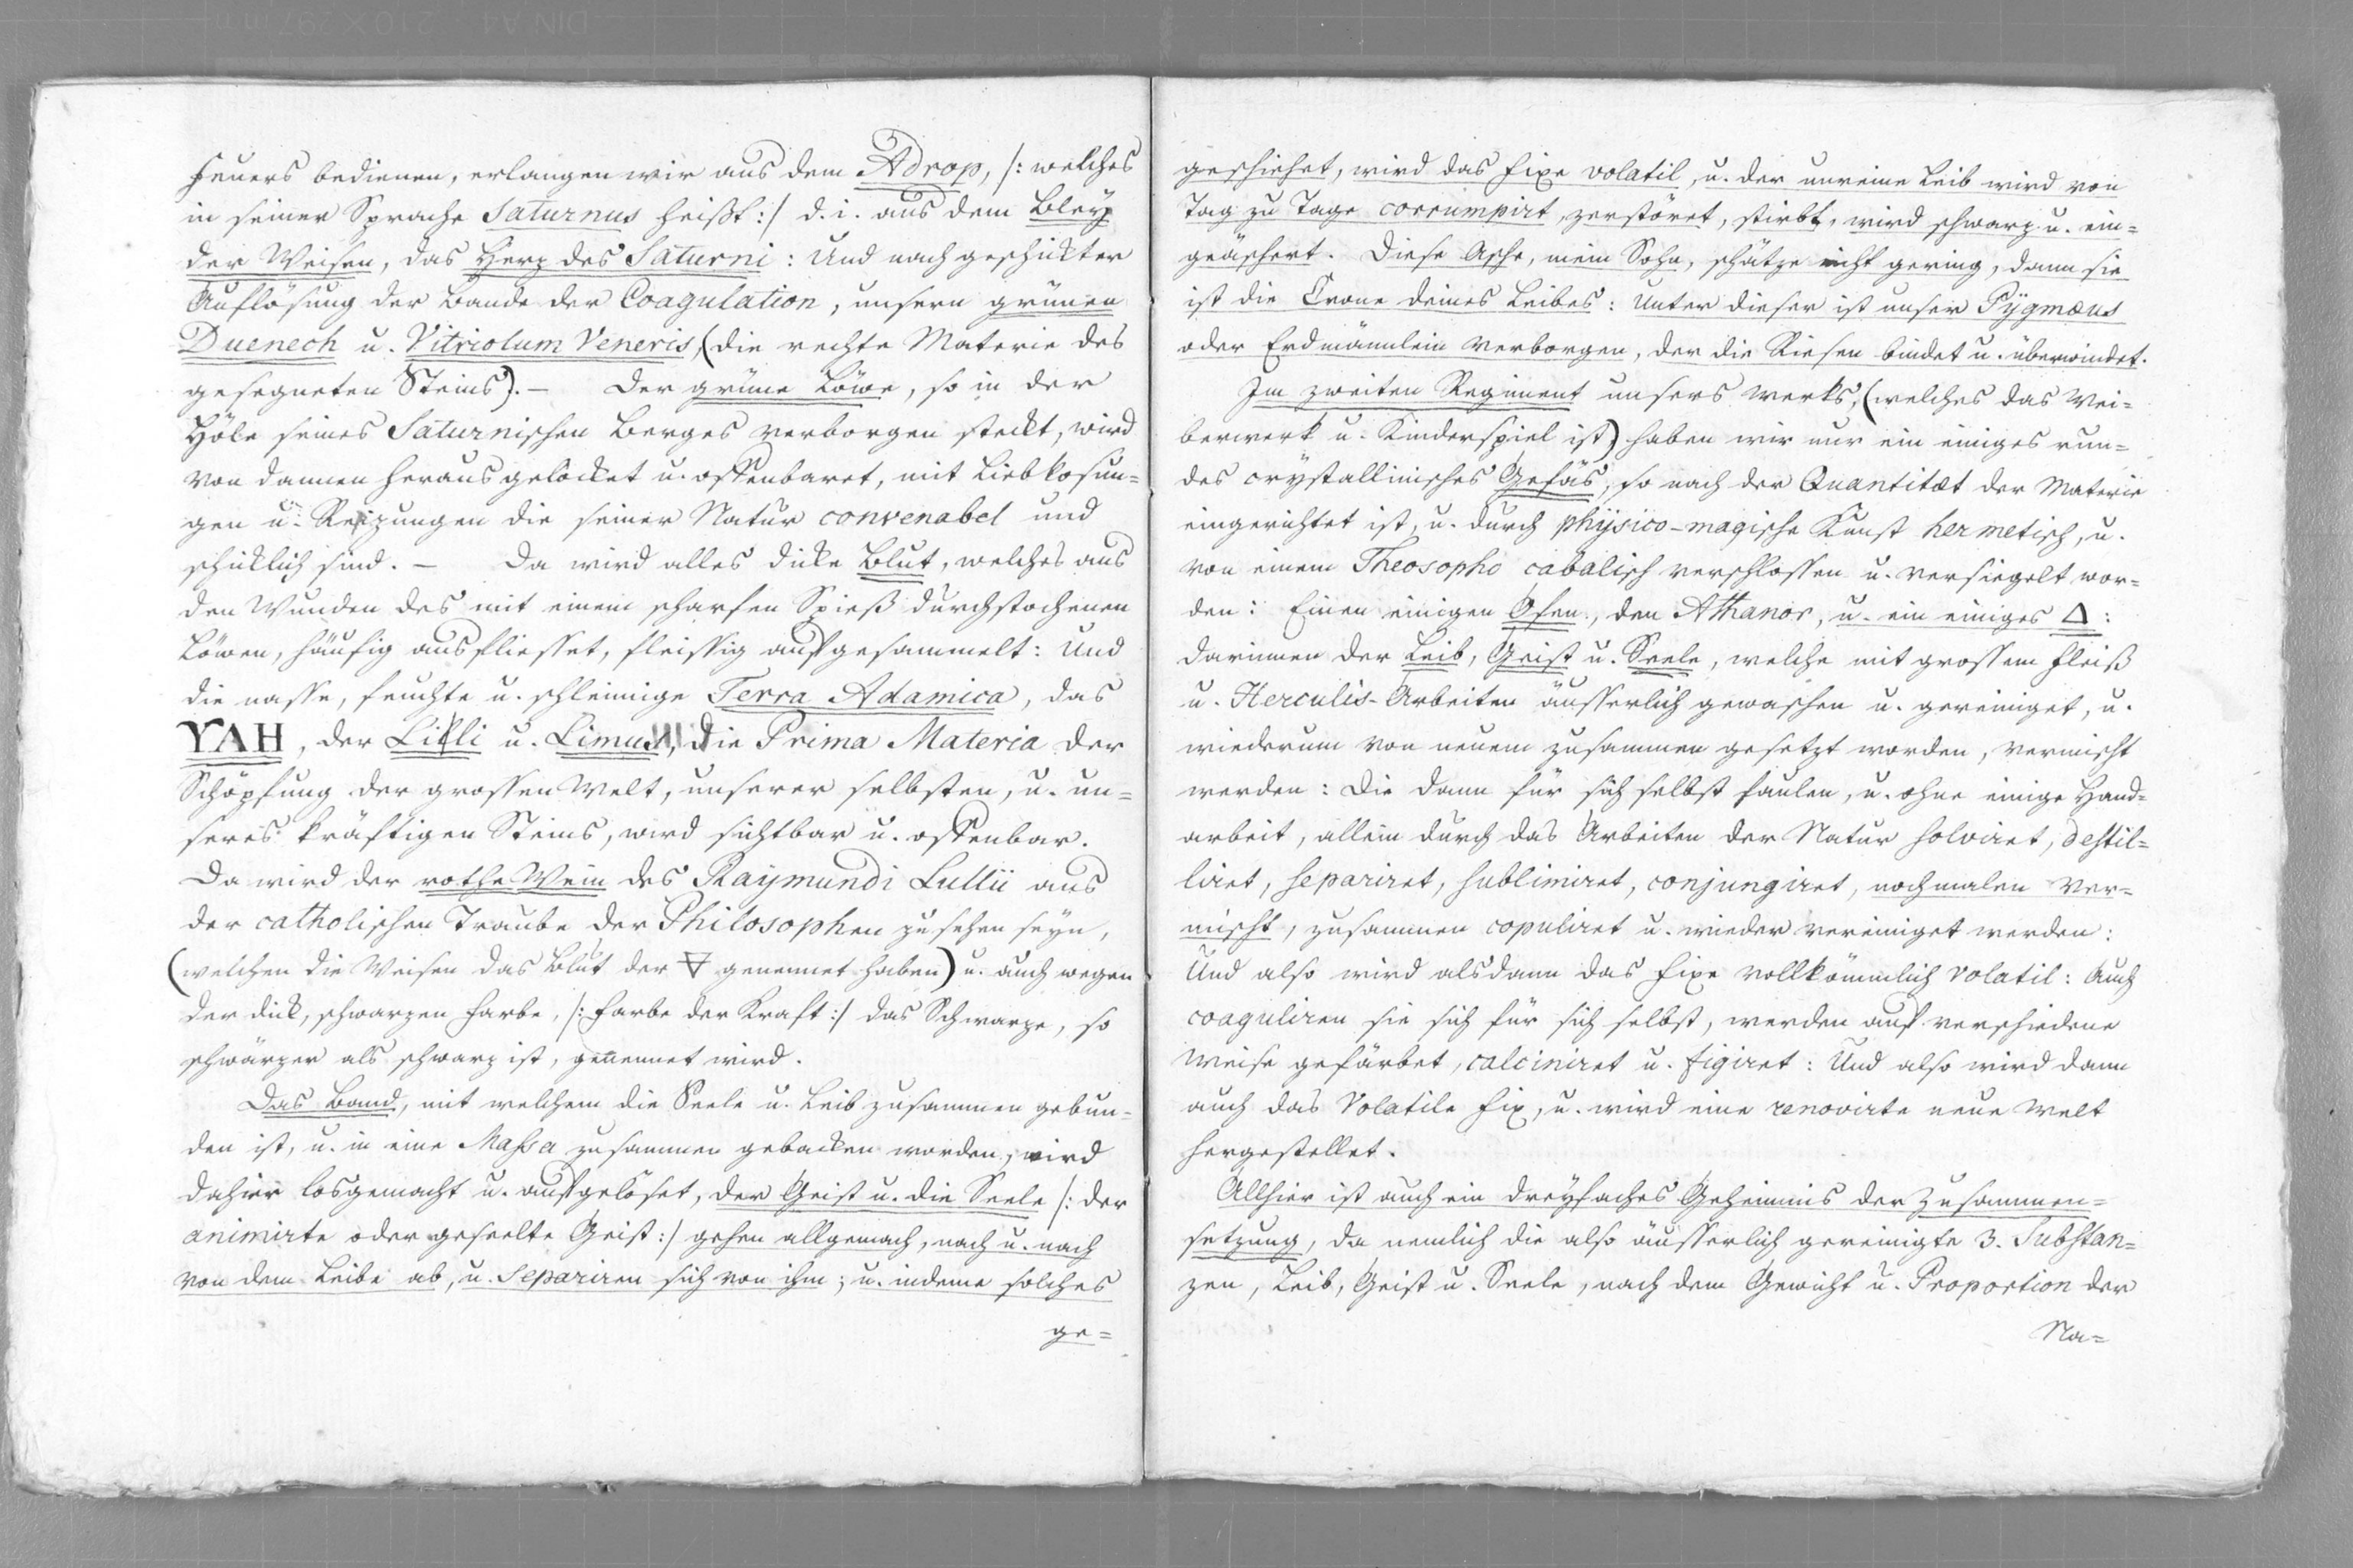 Feuers bedienen, erlangen wir aus dem Adrop, /: welches
in seiner Sprache Saturnus heißt :/ d. i. aus dem Bley
der Weisen, das Herz des Saturni: Und nach geschickter
Auflösung der Bande der Coagulation, unsern grünen
Duenech u. Vitriolum Veneris, (die rechte Materie des
gesegneten Steins). – Der grüne Löwe, so in der
Höle seines Saturnischen Berges verborgen steckt, wird
von dannen heraus gelocket u. offenbaret, mit Liebkosun=
gen u. Reizungen die seiner Natur convenabel und
schicklich sind. – Da wird alles dicke Blut, welches aus
den Wunden des mit einem scharfen Spieß durchstochenen
Löwen, häufig ausfliesset, fleissig aufgesammelt: Und
die nasse, feuchte u. schleimige Terra Adamica, das
YAH, der u. Limus, die Prima Materia der
Schöpfung der grossen Welt, unserer selbsten, u. un=
seres kräftigen Steins, wird sichtbar u. offenbar.
Da wird der rothe Wein des Raymundi Lullii aus
der catholischen Traube der Philosophen zu sehen seyn,
(welchen die Weisen das Blut der 🜃 genennet haben) u. auch wegen
der dick, schwarzen Farbe, /: Farbe der Kraft :/ das Schwarze, so
schwärzer als schwarz ist, genennet wird.
Das Band, mit welchem die Seele u. Leib zusammen gebun=
den ist, u. in eine Massa zusammen gebacken worden, wird
dahier losgemacht u. aufgelöset, der Geist u. die Seele /: der
animirte oder geseelte Geist :/ gehen allgemach, nach u. nach
von dem Leibe ab, u. separiren sich von ihm; u. indeme solches
ge=
geschiehet, wird das Fixe volatil, u. der unreine Leib wird von
Tag zu Tage corrumpirt, zerstöret, stirbt, wird schwarz u. ein=
geäschert. Diese Asche, mein Sohn, schätze nicht gering, dann sie
ist die Crone deines Leibes: Unter dieser ist unser Pÿgmæus
oder Erdmännlein verborgen, der die Riesen bindet u. überwindet.
Im zweiten Regiment unsers Werks, (welches das Wei=
berwerk u. Kinderspiel ist) haben wir nur ein einiges run=
des crystallinisches Gefäs, so nach der Quantitæt der Materie
eingerichtet ist, u. durch phÿsico-magische Kunst hermetisch, u.
von einem Theosopho cabalisch verschlossen u. versiegelt wor=
den: Einen einigen Ofen, den Athanor, u. ein einiges △:
darinnen der Leib, Geist u. Seele, welche mit grossem Fleiß
u. Herculis-Arbeiten äusserlich gewaschen u. gereiniget, u.
wiederum von neuem zusammen gesetzt worden, vermischt
werden: die dann für sich selbst faulen, u. ohne einige Hand=
arbeit, allein durch das Arbeiten der Natur solviret, destil=
liret, separiret, sublimiret, conjungiret, nochmalen ver=
mischt, zusammen copuliret u. wieder vereiniget werden:
Und also wird alsdann das Fixe vollkömmlich volatil: Auch
coaguliren sie sich für sich selbst, werden auf verschiedene
Weise gefärbet, calciniret u. figiret: Und also wird dann
auch das Volatile fix, u. wird eine renovirte neue Welt
hergestellet.
Allhier ist auch ein dreyfaches Geheimnis der Zusammen=
setzung, da nemlich die also äusserlich gereinigte 3. Substan=
zen, Leib, Geist u. Seele, nach dem Gewicht u. Proportion der
Na=